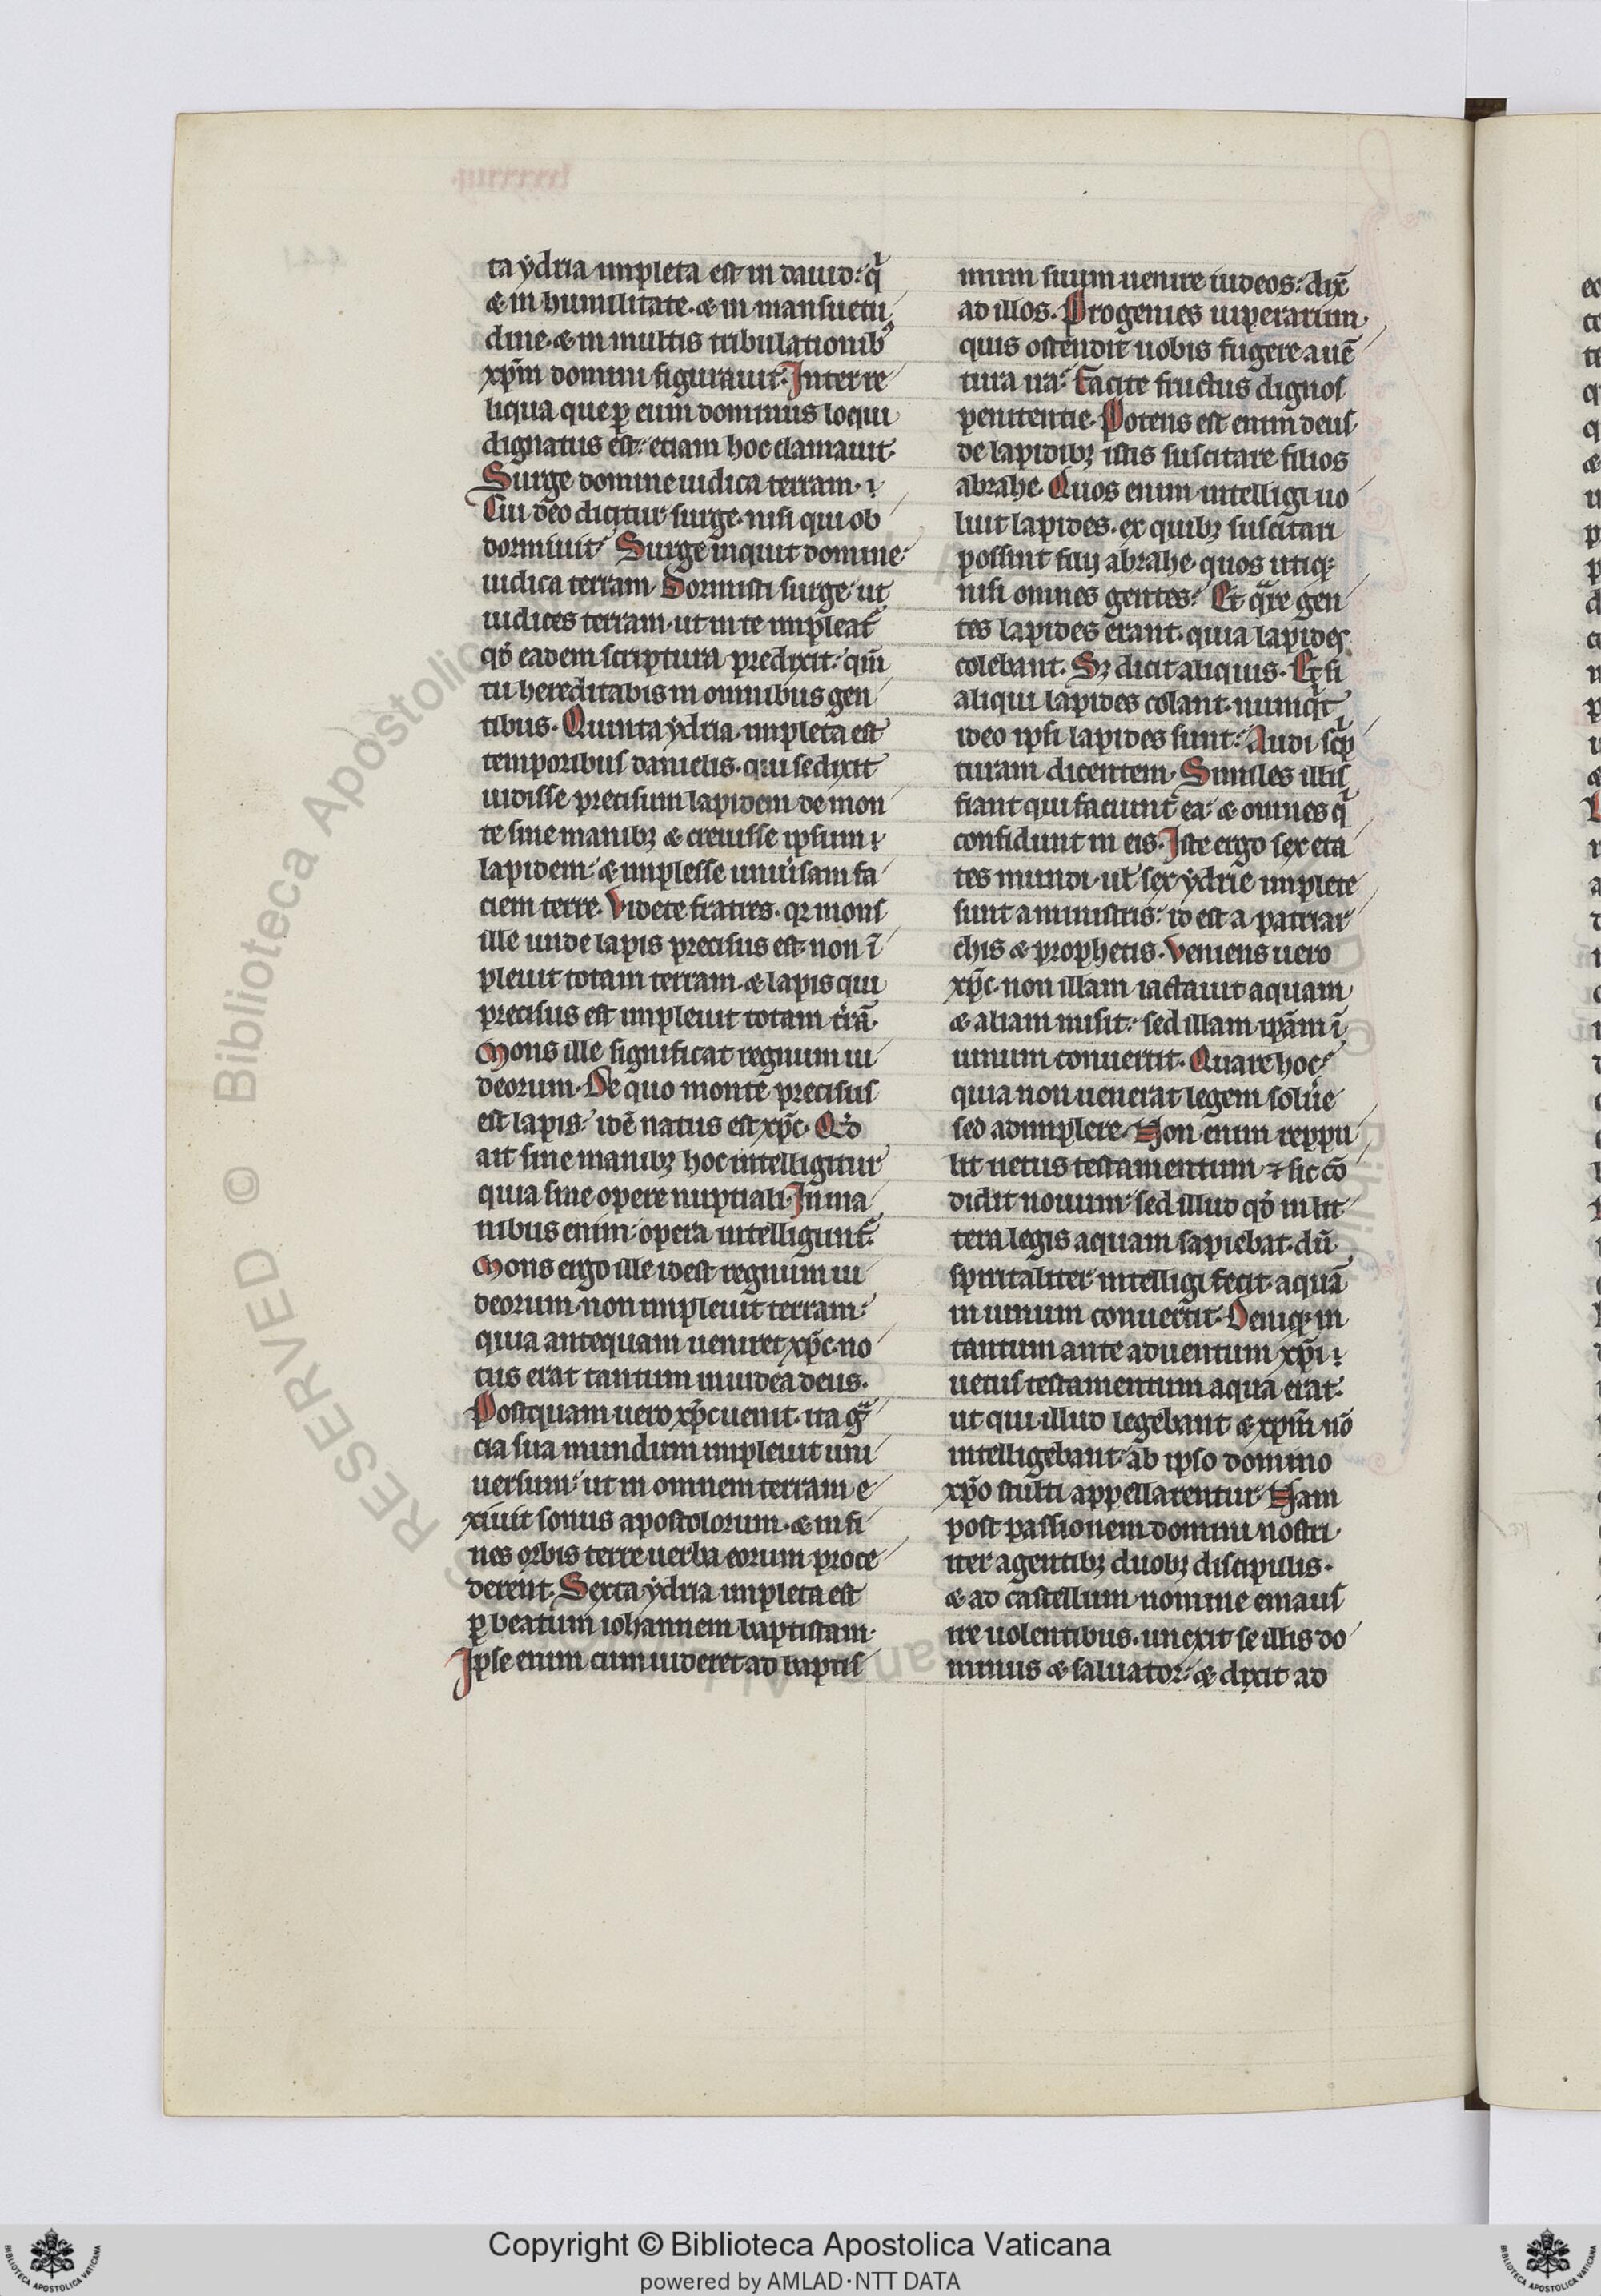 ta ydria impleta est in dauid: qͥ
& in humilitate. & in mansuetu
dine. & in multis tribulationibꝰ
xp̄m dominū figurauit. Inter re
liqua que ꝑ eum dominus loqui
dignatus est: etiam hoc clamauit.
Surge domine iudica terram. ⁊
Cui dēo dicitur surge. nisi qui ob
dormiuit? Surge inquit domine:
iudica terram. Dormisti surge: ut
iudices terram. ut in te impleat᷑
qd̓ eadem scriptura predixit: qm̄
tu hereditabis in omnibus gen
tibus. Quinta ydria impleta est
temporibus danielis. qui se dixit
uidisse precisum lapidem de mon
te sine manibꝫ & creuisse ipsum
lapidem: & implesse uniu̓sam fa
ciem terre. Videte fratres. qꝛ mons
ille unde lapis precisus est. non ī
pleuit totam terram. & lapis qui
precisus est impleuit totam tr̓ā.
Mons ille significat regnum iu
deorum. De quo monte precisus
est lapis: idē natus est xp̄c. Qd̓
ait sine manibꝫ hoc intelligitur
quia sine opere nuptiali. In ma
nibus enim: opera intelligunt᷑.
Mons ergo ille id est regnum iu
deorum. non impleuit terram:
quia antequam ueniret xp̄c. no
tus erat tantum in iudea deus.
Postquam uero xp̄c uenit. ita gͣ
cia sua mundum impleuit uni
uersum: ut in omnem terram e
xiuit sonus apostolorum. & in fi
nes orbis terre uerba eorum proce
derent. Sexta ydria impleta est
ꝑ beatum iohannem baptistam.
Ipse enim cum uideret ad baptis
mum suum uenire iudeos: dix̄
ad illos. Progenies uiperarum.
quis ostendit uobis fugere a uē
tura ira? Facite fructus dignos
penitentie. Potens est enim deus
de lapidibꝫ istis suscitare filios
abrahe. Quos enim intelligi uo
luit lapides. ex quibꝫ suscitari
possint filij abrahe. quos utiqꝫ
nisi omnes gentes? Et qͣre gen
tes lapides erant. quia lapides
colebant. Sꝫ dicit aliquis. Et si
aliqui lapides colant. numqͥt
ideo ipsi lapides sunt? Audi scͥp
turam dicentem. Similes illis
fiant qui faciunt ea: & omnes qͥ
confidunt in eis. Iste ergo sex eta
tes mundi. ul̓ sex ydrie implete
sunt a ministris: id est a patriar
chis & prophetis. Veniens uero
xp̄c. non illam iactauit aquam
& aliam misit: sed illam ipām ī
uinum conuertit. Quare hoc?
quia non uenerat legem solu̓e
sed adimplere. Non enim reppu
lit uetus testamentum ⁊ sic cō
didit nouum: sed illud qd̓ in lit
tera legis aquam sapiebat. dū
spiritaliter intelligi fecit. aquā
in uinum conuertit. Deniqꝫ in
tantum ante aduentum xp̄i
uetus testamentum aqua erat.
ut qui illud legebant & xp̄m nō
intelligebant: ab ipso domino
xp̄o stulti appellarentur. Nam
post passionem domini nostri
iter agentibꝫ duobꝫ discipulis.
& ad castellum nomine emaus
ire uolentibus. iunxit se illis do
minus & saluator: & dixit ad
Copyright © Biblioteca Apostolica Vaticana
powered by AMLAD·NTT DATA